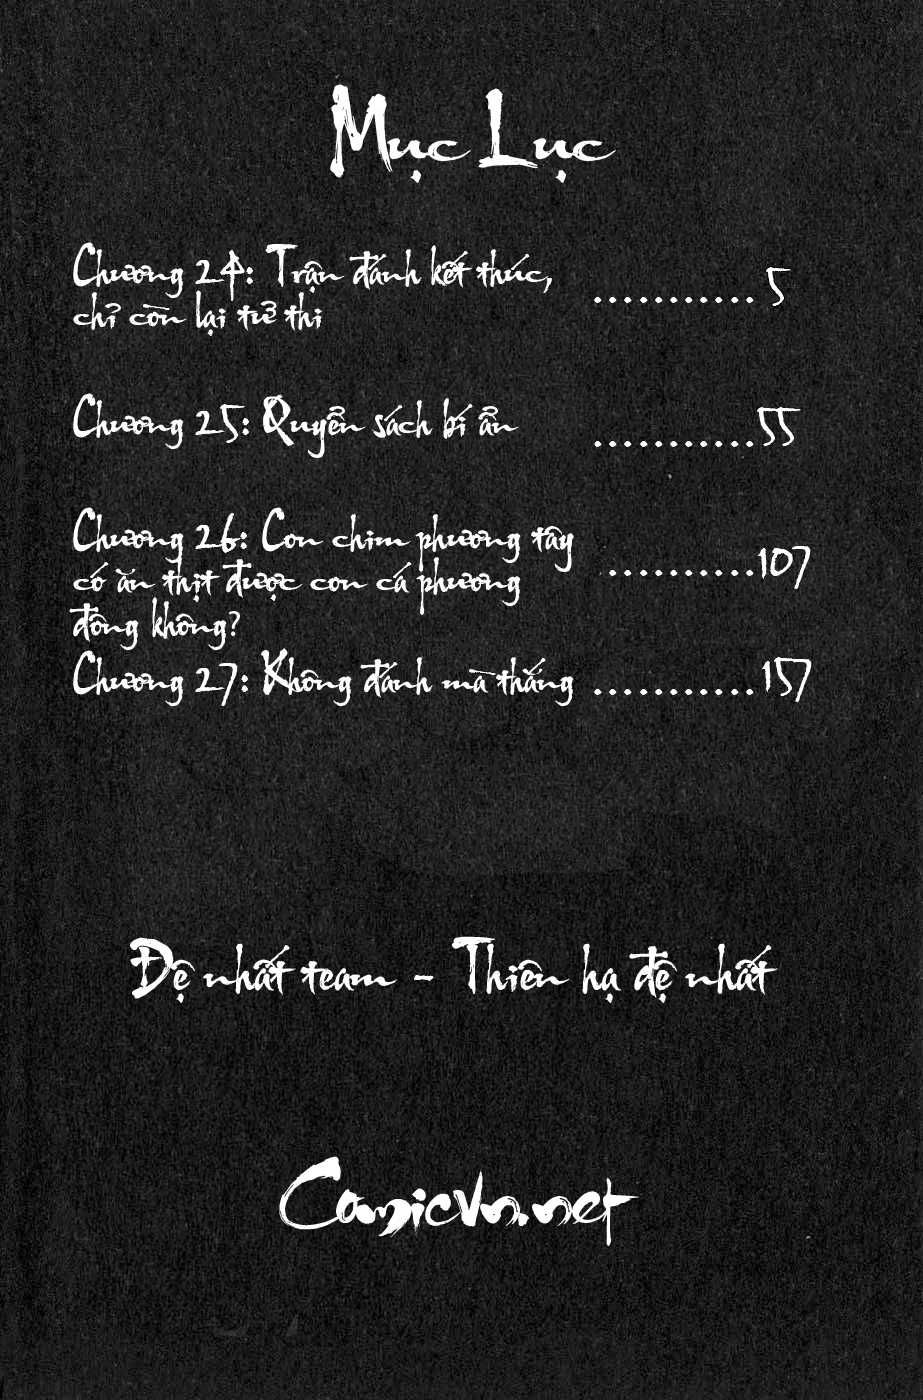 Mục Lục
Chương 24: Trận đánh kết thúc,
chỉ còn lại tử thi
........... 5
Chương 25: Quyển sách bí ẩn
...........55
Chương 26: Con chim phương tây
có ăn thịt được con cá phương
đông không?
..........107
Chương 27: Không đánh mà thắng ........... 157
Đệ nhất team - Thiên hạ đệ nhất
Comicvn.net